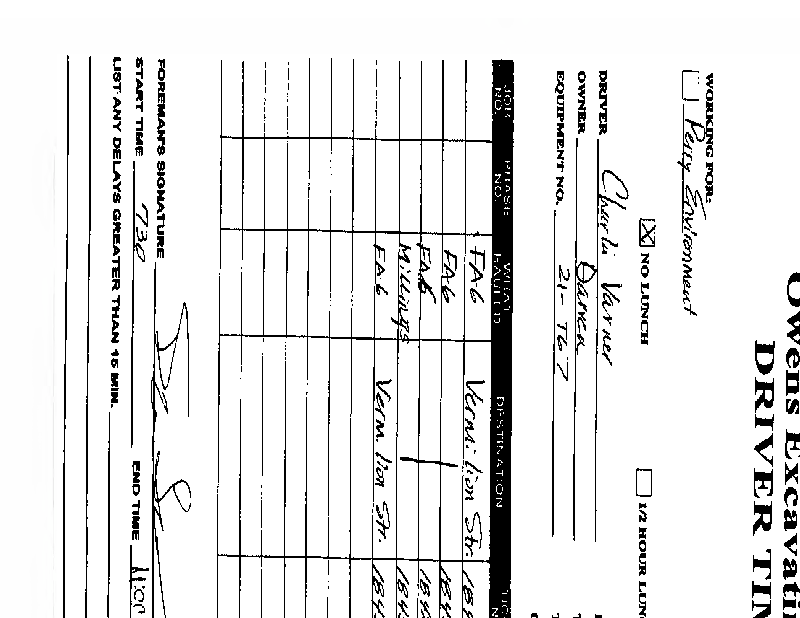 Owens Excavati
DRIVER TIM
WORKING FOR:
Perry Environment
NO LUNCH
1/2 HOUR LUN
DRIVER Charli Varner
OWNER Damea
EQUIPMENT NO. 21-T67
JOB NO. PHASE NO. WHAT HAULED DESTINATION
FA6 Vermilion Str. 184
FA6 184
FA6 184
Millings 184
FA6 Vermilion Str. 184
FOREMAN'S SIGNATURE
START TIME 730 END TIME 11:00
LIST ANY DELAYS GREATER THAN 15 MIN.